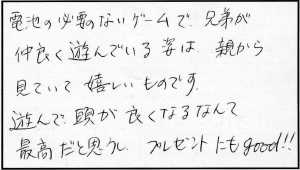 電池の必要のないゲームで、兄弟が
仲良く遊んでいる姿は、親から
見ていて嬉しいものです。
遊んで、頭が良くなるなんて
最高だと思うし、プレゼントにもgood!!